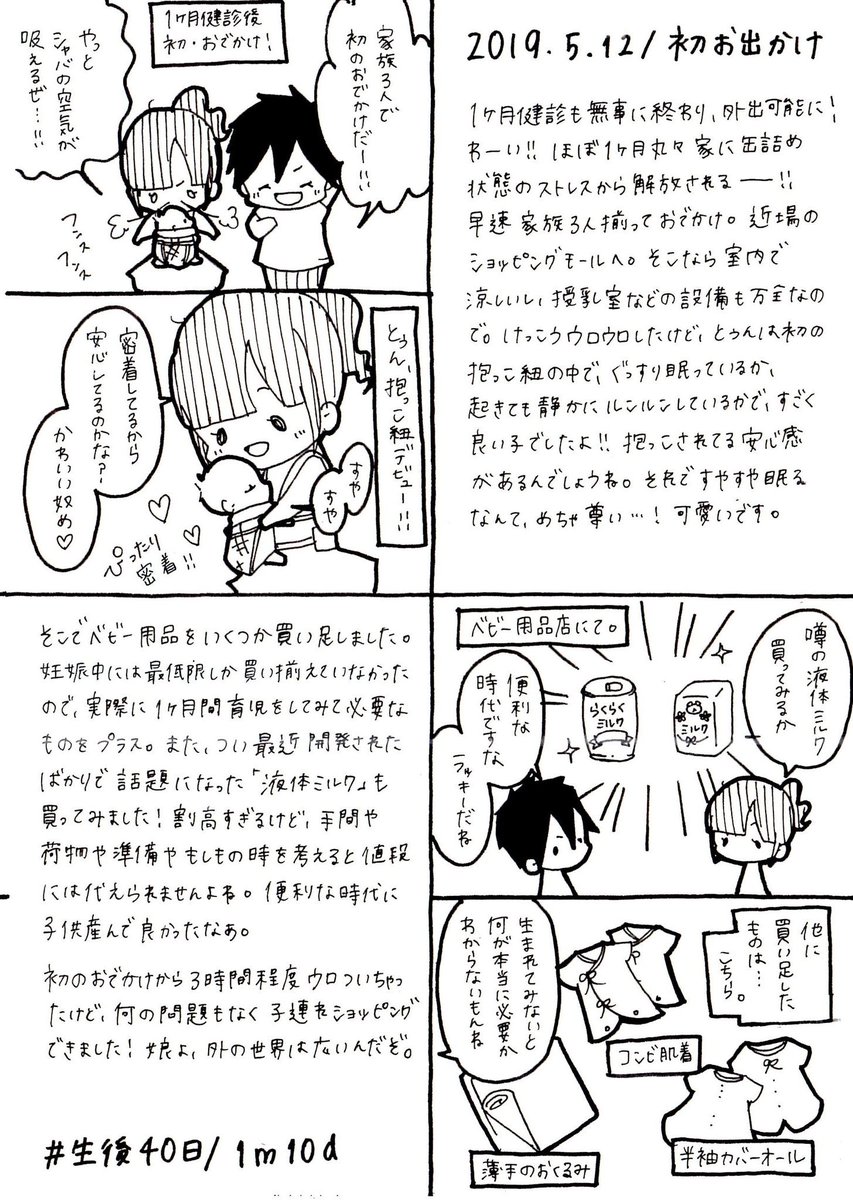 1ケ月健診後
初・おでかけ!
家族3人で
初のおでかけだー!!
やっと
シャバの空気が
吸えるぜ…!!
フンス
フンス
2019.5.12/初お出かけ
1ケ月健診も無事に終わり、外出可能に!
わーい!! ほぼ1ケ月丸々家に缶詰め
状態のストレスから解放されるーー!!
早速家族3人揃っておでかけ。近場の
ショッピングモールへ。そこなら室内で
涼しいし、授乳室などの設備も万全なの
で。けっこうウロウロしたけど、とぅんは初の
抱っこ紐の中で、ぐっすり眠っているか、
起きても静かにルンルンしているかで、すごく
良い子でしたよ!! 抱っこされてる安心感
があるんでしょうね。それですやすや眠る
なんて、めちゃ尊い…!可愛いです。
とぅん、抱っこ紐デビュー!!
すや
すや
密着してるから
安心してるのかな?
かわいい奴め♡
ぴったり
密着!!
そこでベビー用品をいくつか買い足しました。
妊娠中には最低限しか買い揃えていなかった
ので、実際に1ケ月間育児をしてみて必要な
ものをプラス。また、つい最近開発された
ばかりで話題になった「液体ミルク」も
買ってみました!割高すぎるけど、手間や
荷物や準備やもしもの時を考えると値段
には代えられませんよね。便利な時代に
子供産んで良かったなあ。
初のおでかけから3時間程度ウロついちゃっ
たけど、何の問題もなく子連れショッピング
できました!娘よ、外の世界は広いんだぞ。
#生後40日/1m10d
ベビー用品店にて。
噂の液体ミルク
買ってみるか
らくらく
ミルク
ミルク
便利な
時代ですな
ラッキーだね
他に
買い足した
ものは…
こちら。
生まれてみないと
何が本当に必要か
わからないもんね
コンビ肌着
半袖カバーオール
薄手のおくるみ